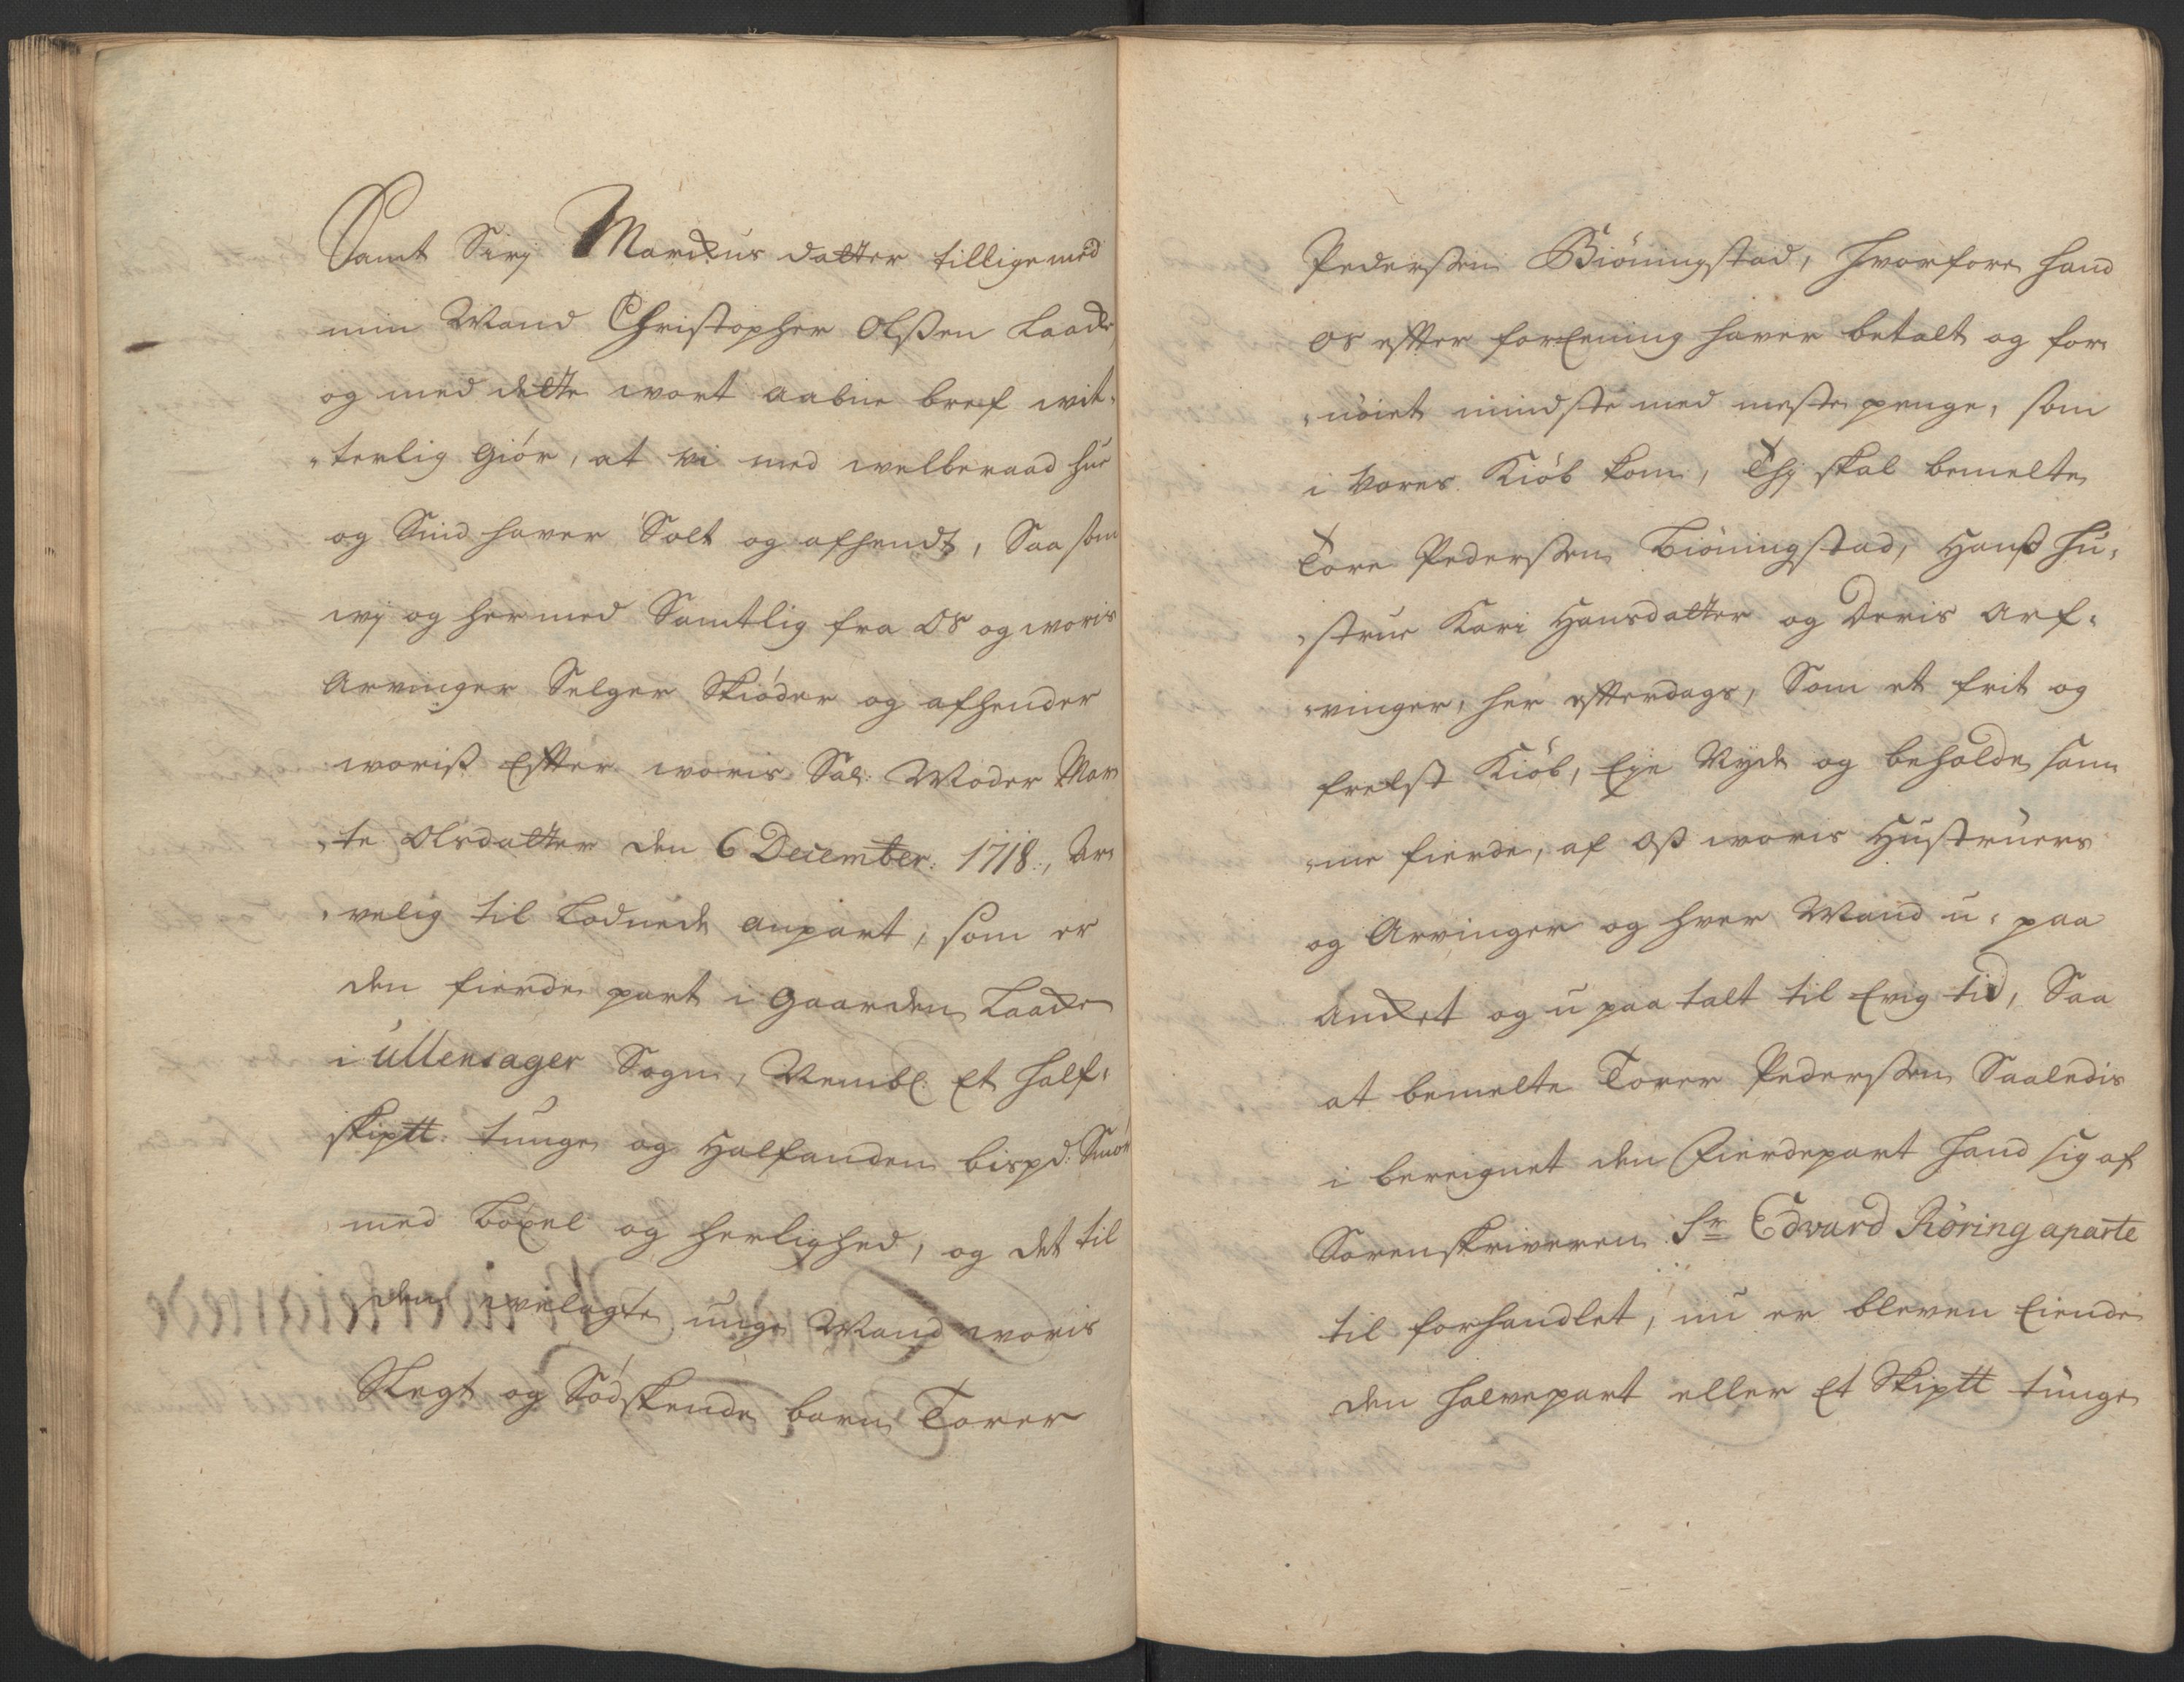 Samt Sirj Markus datter tillige med
min Mand Christopher Olssen Laache
og med dette wort aabne bref wit¬
terlig giör, at vi med welberaad hue
og Sind haver Solt og afhendt, Saa som
wj og her med Samtlig fra Os og woris
Arvinger Selger Skiöder og afhender
woriss Efter woris Sal: Moder Mar¬
te Olsdatter den 6 December: 1718, Ar¬
velig til Lodnede anpart, som er
den fierde part i Gaarden Laache
i Ullensager Sogn, Nembl: Et half¬
skiptt: tunge og Halfanden bispd: Smör
med Böxel og herlighed, og det til
den welagte unge Mand woris
Slegt og Södskende barn Torer
Pederssen Biöningstad, hvorfore hand
os efter forEening haver betalt og for¬
nöiet mindste med meste penge, som
i vores Kiöb kom, Thj skal bemelte
Tore Pederssen Biöningstad, Hanss hu¬
strue Kari Hansdatter og Deris Arf¬
vinger, her efterdags, Som et frit og
frelst Kiöb, Eje Nyde og beholde sam¬
me fierde, af Oss woris Hustruers
og Arvinger og hver Mand u¬paa
Ancket og upaa talt til Evig tid, Saa
at bemelte Torer Pederssen Saaledis
i bereignet den Fierdepart hand sig af
Sorenskriveren Sr Edvard Röring aparte
til forhandlet, nu er bleven Eiende
den halvepart eller Et Skiptt tunge